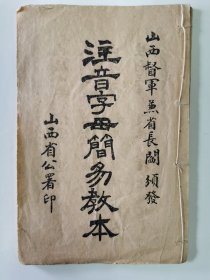 山西督軍兼省長閻頒發
注音字母簡易教本
山西省公署印